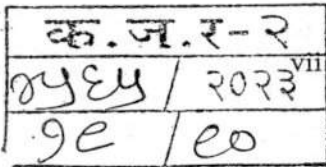 क.ज.र-२
७५६५ / २०२३ vii
१९ / ९०